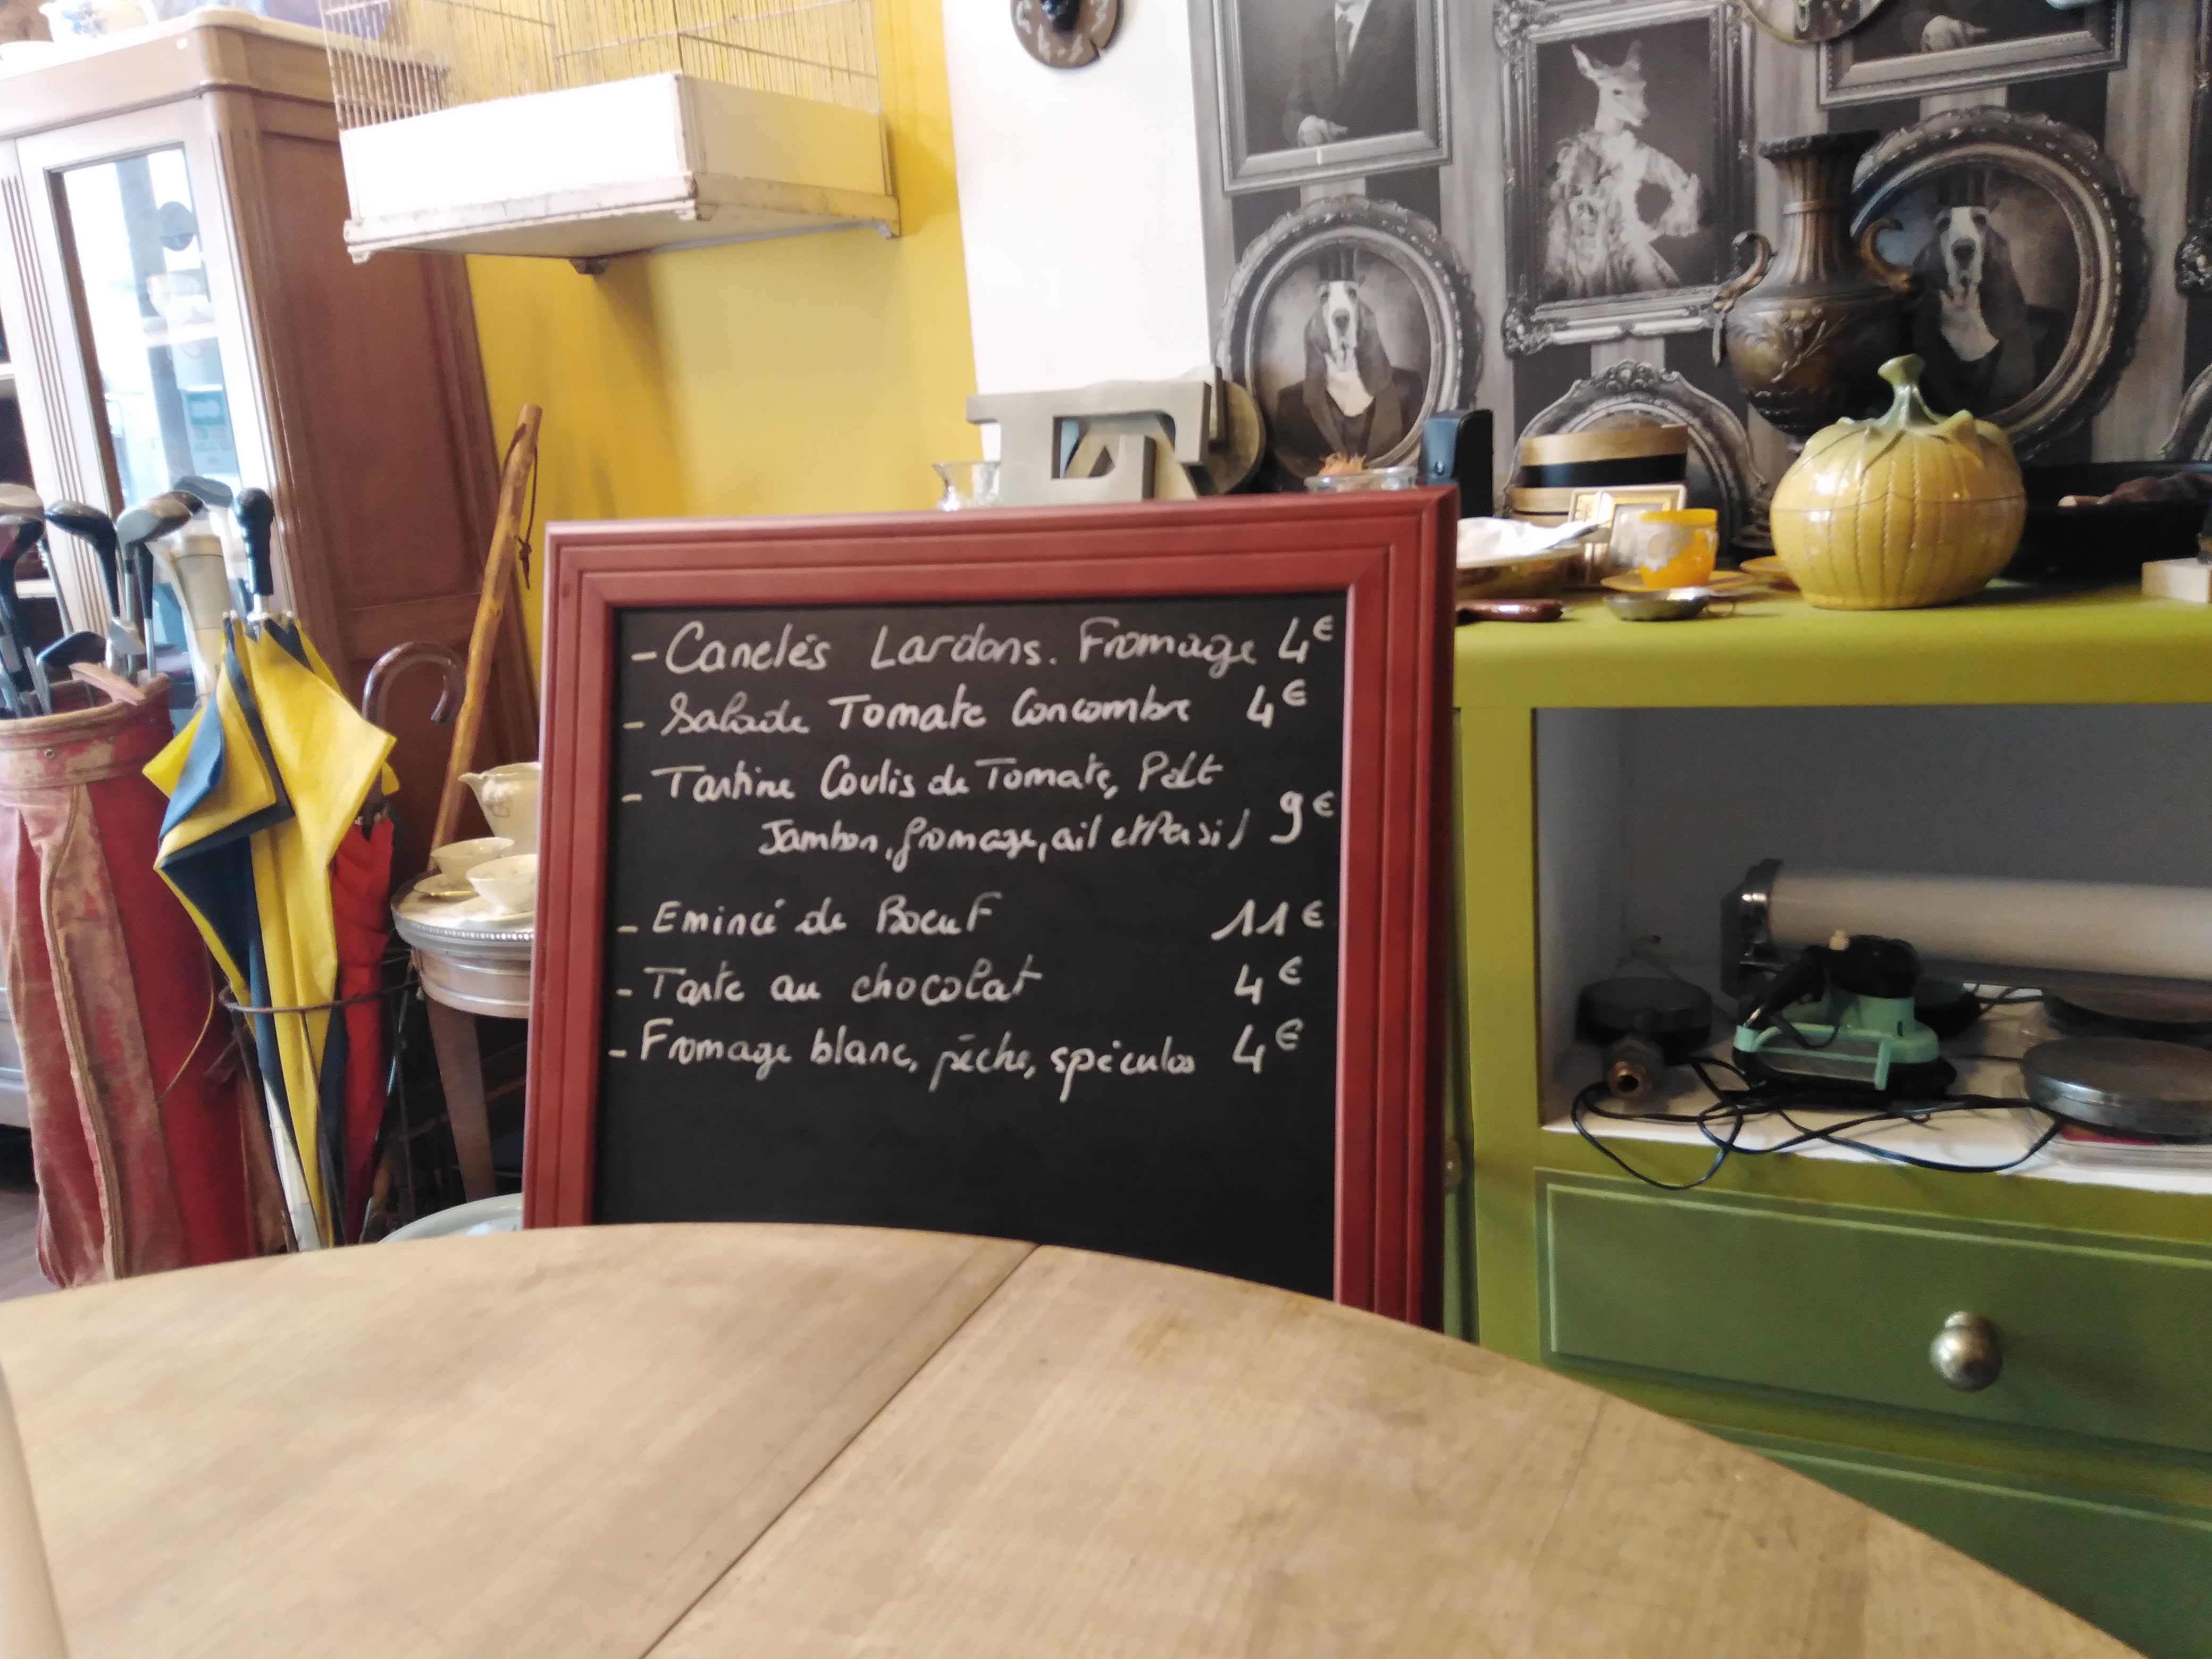 - Canelés Lardons. Fromage 4€
- Salade Tomate Concombre 4€
- Tartine Coulis de Tomate,
Jambon, fromage, ail et Persil 9€
- Emincé de Boeuf 11€
- Tarte au chocolat 4€
- Fromage blanc, pêche, spéculos 4€